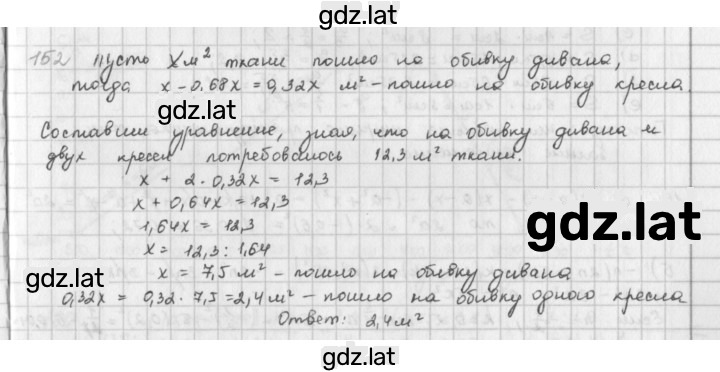 gdz.lat
152 Пусть x м² ткани пошло на обивку дивана,
тогда x - 0.68x = 0,32x м² - пошло на обивку кресла.
gdz.lat
Составим уравнение, зная, что на обивку дивана и
двух кресел потребовалось 12,3 м² ткани.
x + 2·0,32x = 12,3
x + 0,64x = 12,3
1,64x = 12,3
gdz.lat
x = 12,3 : 1,64
gdz.lat
x = 7,5 м² - пошло на обивку дивана
0,32x = 0,32 · 7,5 = 2,4 м² - пошло на обивку одного кресла
Ответ: 2,4 м²
gdz.lat